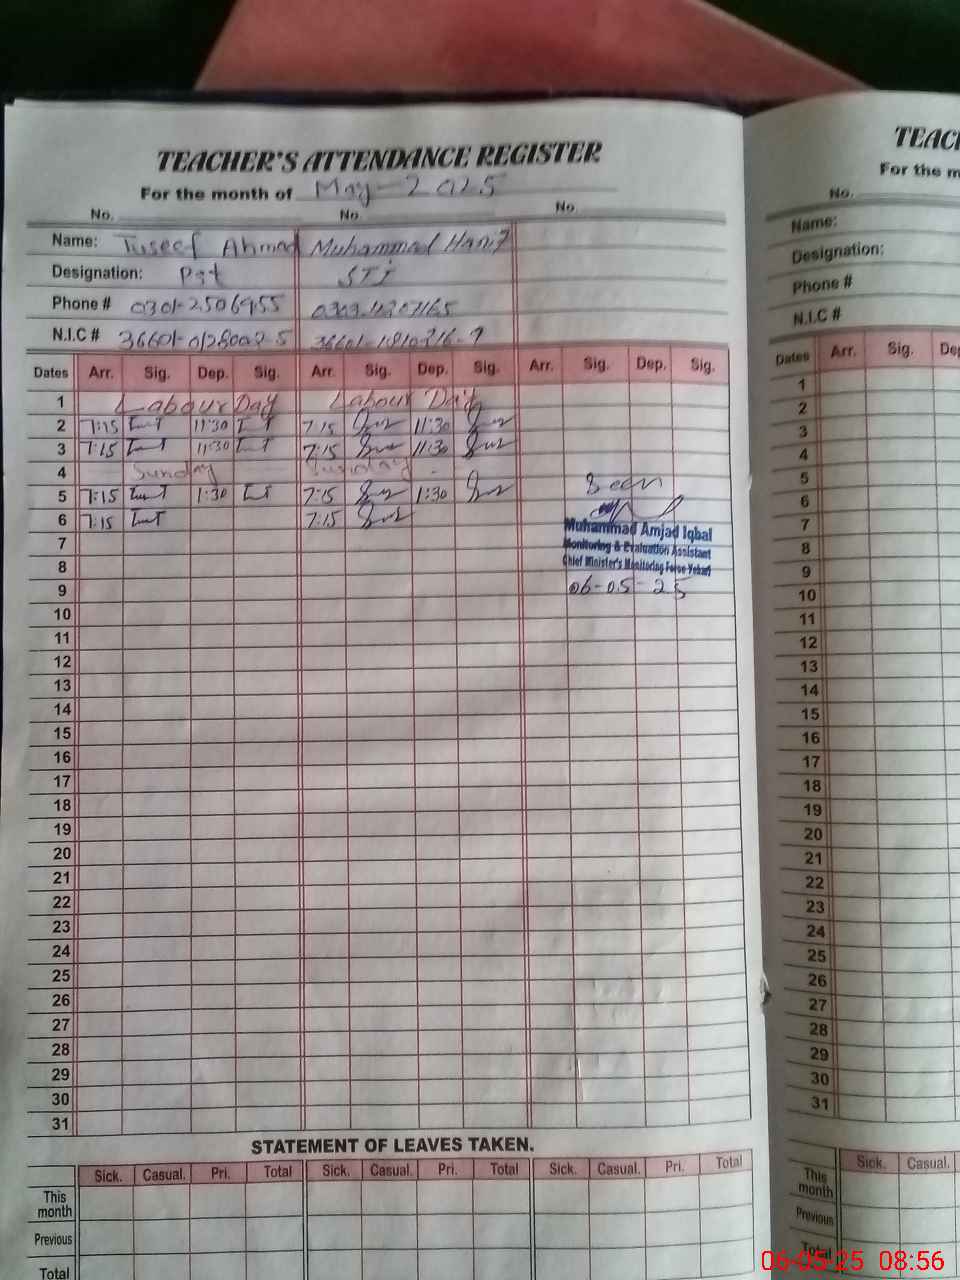 TEACHER'S ATTENDANCE REGISTER
For the month of May-2025
No. No. No.
Name: Tuseef Ahmad Muhammad Hanif
Designation: Pst STI
Phone # 0301-2506955
N.I.C #
Dates Arr. Sig. Dep. Sig. Arr. Sig. Dep. Sig. Arr. Sig. Dep. Sig.
1 Labour Day Labour Day
2 7:15 11:30 7:15 11:30
3 7:15 11:30 7:15 11:30
4 Sunday Sunday
5 7:15 1:30 7:15 1:30
6 7:15 7:15
7
8
9
10
11
12
13
14
15
16
17
18
19
20
21
22
23
24
25
26
27
28
29
30
31
Seen
Muhammad Amjad Iqbal
Monitoring & Evaluation Assistant
Chief Minister's Monitoring Force Vehari
06-05-25
STATEMENT OF LEAVES TAKEN.
Sick. Casual. Pri. Total Sick. Casual. Pri. Total Sick. Casual. Pri. Total
This month
Previous
Total
TEAC
For the m
No.
Name:
Designation:
Phone #
N.I.C #
Dates Arr. Sig. De
1
2
3
4
5
6
7
8
9
10
11
12
13
14
15
16
17
18
19
20
21
22
23
24
25
26
27
28
29
30
31
Sick. Casual.
This month
Previous
Total
06-05-25 08:56